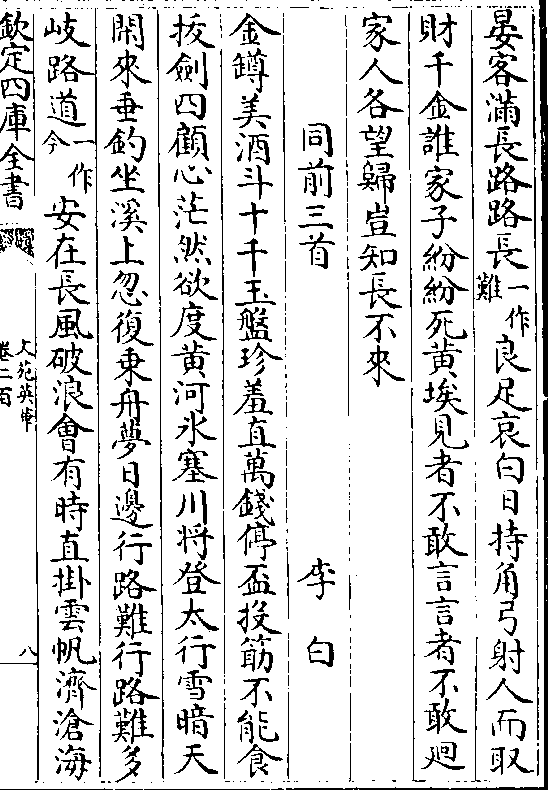 晏客滿長路路長一作難良足哀白日持角弓射人而取
財千金誰家子紛紛死黄埃見者不敢言言者不敢廻
家人各望歸豈知長不來
同前三首 李白
金鐏美酒斗十千玉盤珍羞直萬錢停盃投筯不能食
拔劍四顧心茫然欲度黄河氷塞川将登太行雪暗天
閑來垂釣坐溪上忽復乗舟夢日邊行路難行路難多
岐路道一作今安在長風破浪會有時直掛雲帆濟滄海
欽定四庫全書
文苑英華
卷二百
八